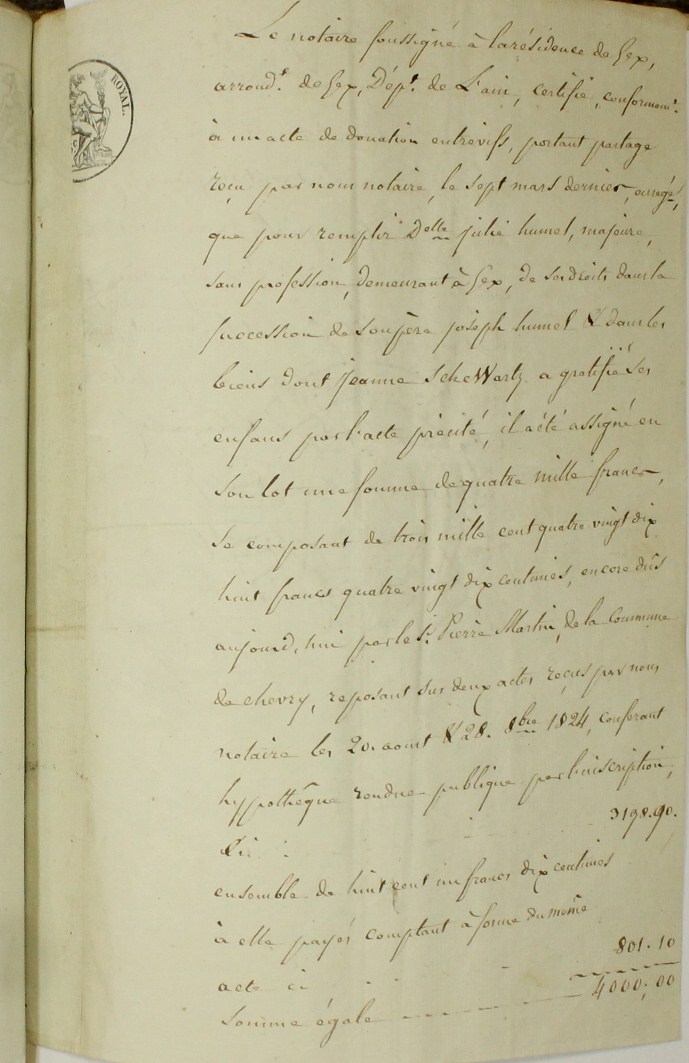 ROYAL.
Le notaire soussigné à la résidence de Gex,
arrond.t de Gex, Dép.t de L'ain, certifie, conformem.t
à un acte de donation entrevifs, portant partage
reçu par nous notaire, le sept mars dernier, enregé,
que pour remplir Delle julie humel, majeure,
sans profession, demeurant à Gex, de ses droits dans la
succession de son père joseph humel & dans les
biens dont jeanne ScheWartz a gratifié ses
enfans par l'acte précité, il a été assigné en
son lot une somme de quatre mille francs,
se composant de trois mille cent quatre vingt dix
huit francs quatre vingt dix centimes, encore dûs
aujourd'hui par le Sr. Pierre Martin, de la Commune
de chevry, reposant sur deux actes reçus par nous
notaire les 20. aout & 28. 8bre 1824, conférant
hypothêque rendue publique par l'inscription,
Ci . 3198.90.
ensemble de huit cent un francs dix centimes
à elle payés comptant à forme du même
acte ci 801.10
Somme égale 4000,00